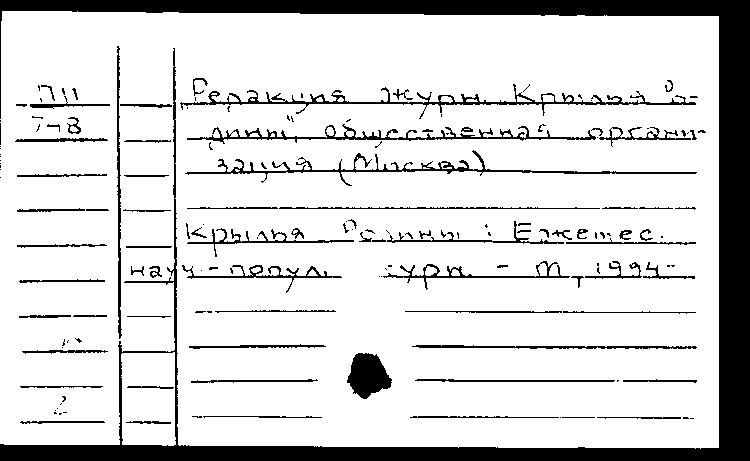 П11
7-18
"Редакция журн. Крылья Ро-
дины", общественная органи-
зация (Москва)
Крылья Родины : Ежемес.
науч.-попул. журн. - М, 1994-
2